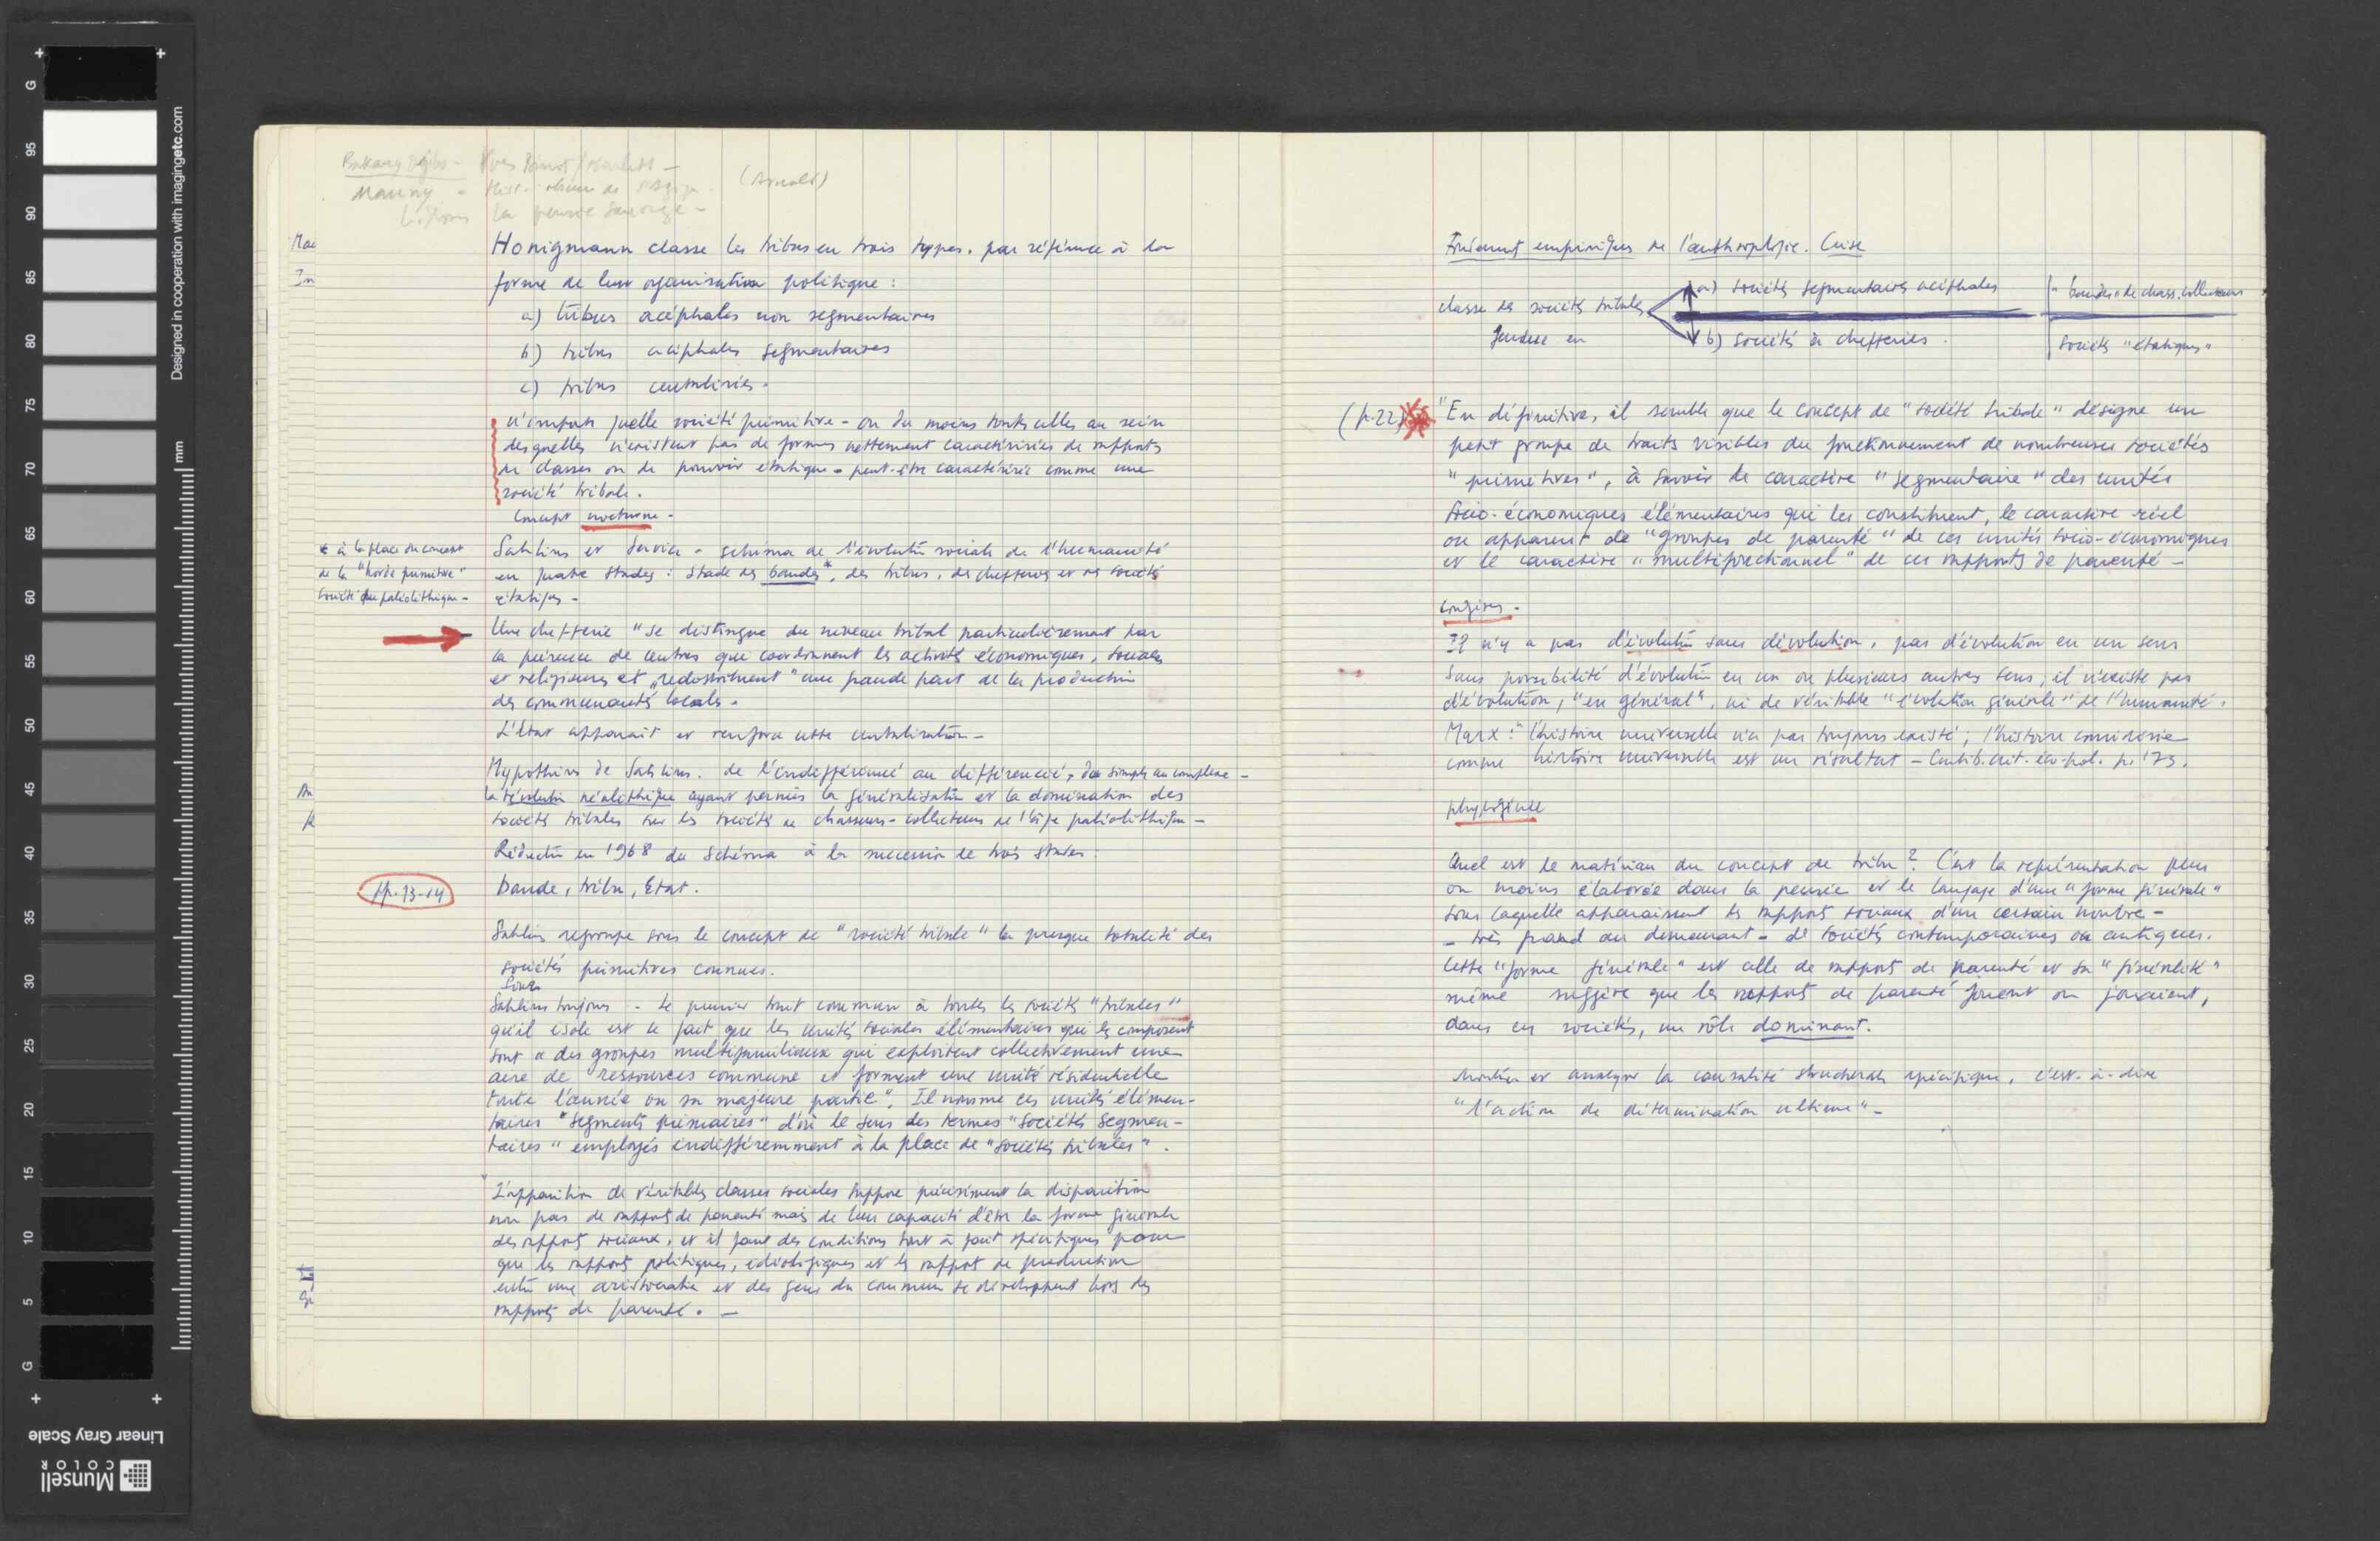 Mauny
(Arnolt)
la pensée sauvage -
Honigmann classe les tribus en trois types, par référence à la
forme de leur organisation politique :
a) tribus acéphales non segmentaires
b) tribus acéphales segmentaires
c) tribus centralisées.
n'importe quelle société primitive - ou du moins toutes celles au sein
desquelles n'existent pas de formes nettement caractérisées de rapports
de classes ou de pouvoir étatique - peut-être caractérisée comme une
société tribale.
Concept nocturne -
* à la place du concept
de la "horde primitive"
société du paléolithique -
Sahlins et Service - schéma de l'évolution sociale de l'humanité
en quatre stades : stade des bandes*, des tribus, des chefferies et des sociétés
étatiques -
Une chefferie "se distingue du niveau tribal particulièrement par
la présence de centres qui coordonnent les activités économiques, sociales
et religieuses et "redistribuent" une grande part de la production
des communautés locales.
L'Etat apparaît et renforce cette centralisation -
Hypothèse de Sahlins. de l'indifférencié au différencié, du simple au complexe -
la révolution néolithique ayant permis la généralisation et la domination des
sociétés tribales sur les sociétés de chasseurs-collecteurs de l'âge paléolithique -
Réduction en 1968 du schéma à la succession de trois stades :
pp. 13-14
bande, tribu, Etat.
Sahlins regroupe sous le concept de "société tribale" la presque totalité des
sociétés primitives connues.
Sahlins toujours - Le premier trait commun à toutes les sociétés "tribales"
qu'il isole est le fait que les unités sociales élémentaires qui les composent
sont « des groupes multifamiliaux qui exploitent collectivement une
aire de ressources commune et forment une unité résidentielle
toute l'année ou sa majeure partie". Il nomme ces unités élémen-
taires "segments primaires" d'où le sens des termes "sociétés segmen-
taires" employés indifféremment à la place de "sociétés tribales".
"L'apparition de véritables classes sociales suppose précisément la disparition
non pas de rapports de parenté mais de leur capacité d'être la forme générale
des rapports sociaux, et il faut des conditions tout à fait spécifiques pour
que les rapports politiques, idéologiques et les rapports de production
entre une aristocratie et des gens du commun se développent hors des
rapports de parenté. -
Fondements empiriques de l'anthropologie. Crise
classe des sociétés tribales
scindée en
a) sociétés segmentaires acéphales
b) sociétés à chefferies.
"bandes" de chass. collecteurs
sociétés "étatiques"
(p. 22)
"En définitive, il semble que le concept de "société tribale" désigne un
petit groupe de traits visibles du fonctionnement de nombreuses sociétés
"primitives", à savoir le caractère "segmentaire" des unités
socio-économiques élémentaires qui les constituent, le caractère réel
ou apparent de "groupes de parenté" de ces unités socio-économiques
et le caractère "multifonctionnel" de ces rapports de parenté -
Il n'y a pas d'évolution sans dévolution, pas d'évolution en un sens
sans possibilité d'évolution en un ou plusieurs autres sens, il n'existe pas
d'évolution, "en général", ni de véritable "évolution générale" de l'humanité.
Marx : "l'histoire universelle n'a pas toujours existé ; l'histoire considérée
comme histoire universelle est un résultat - Contrib. crit. éco-pol. p. 173.
phylogénèse
Quel est le matériau du concept de tribu ? C'est la représentation plus
ou moins élaborée dans la pensée et le langage d'une "forme générale"
sous laquelle apparaissent les rapports sociaux d'un certain nombre -
- très grand au demeurant - de sociétés contemporaines ou antiques.
Cette "forme générale" est celle de rapports de parenté et sa "généralité"
même suggère que les rapports de parenté jouent ou jouaient,
dans ces sociétés, un rôle dominant.
Montrer et analyser la causalité structurale spécifique, c'est-à-dire
"l'action de détermination ultime" -
Designed in cooperation with imagingetc.com
mm
G
95
90
85
80
75
70
65
60
55
50
45
40
35
30
25
20
15
10
5
G
Linear Gray Scale
Munsell
COLOR